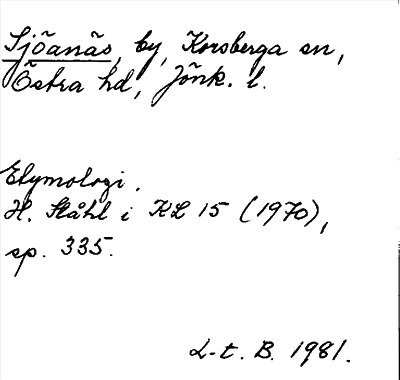 Sjöanäs, by, Korsberga sn,
Östra hd, Jönk. l.
Etymologi.
H. Ståhl i KL 15 (1970),
sp. 335.
L-t. B. 1981.